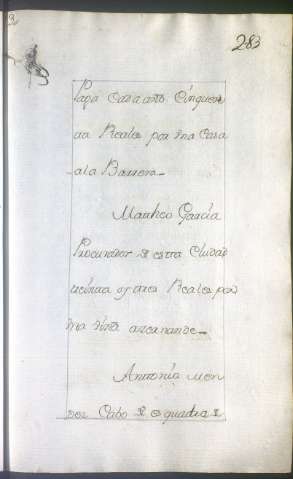 283
Paga Cada año Cinquen
ta Reales por Una Casa
a la Barrera
Matheo Garcia
Procurador de esta Ciudad
treinta y tres Reales por
Una Viña
Antonio Men
dez Cabo de esquadra de